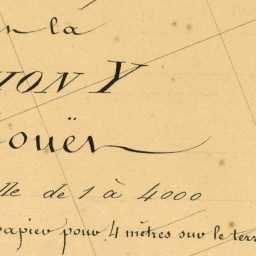 la
ION Y
ouër
lle de 1 à 4000
papier pour 4 mètres sur le terr